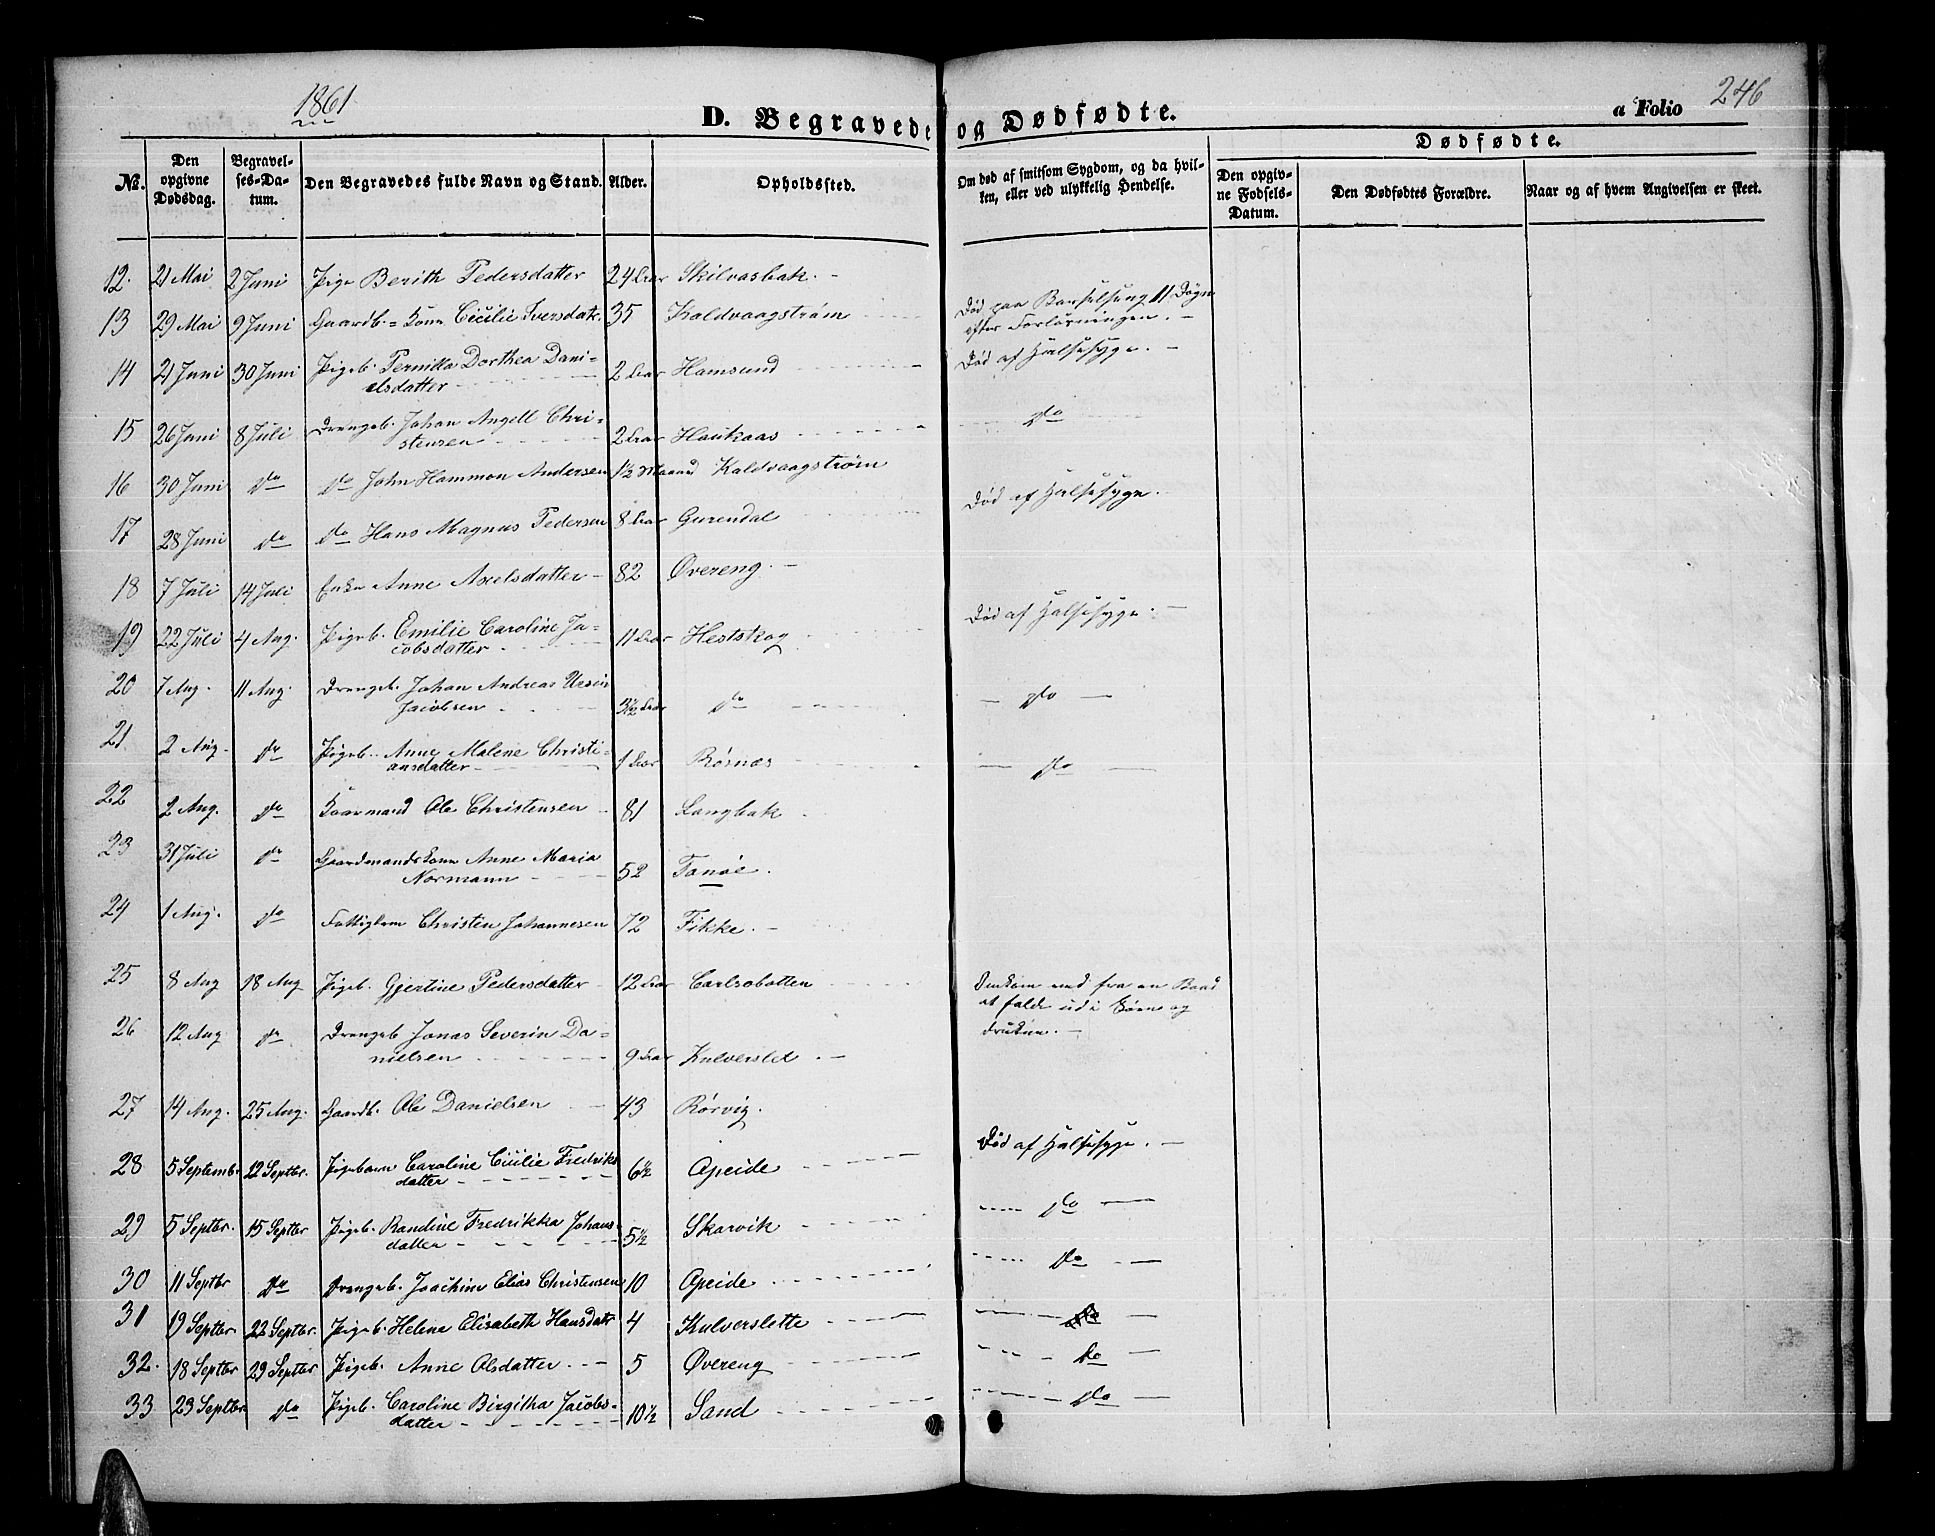 1861
D. Begravede og Dødfødte.
a Folio 246
№.
Den opgivne Dødsdag.
Begravelses-Datum.
Den Begravedes fulde Navn og Stand.
Alder.
Opholdssted.
Om død af smitsom Sygdom, og da hvilken, eller ved ulykkelig Hendelse.
Dødfødte.
Den opgivne Fødsels-Datum.
Den Dødfødtes Forældre.
Naar og af hvem Angivelsen er skeet.
12. 21 Mai 2 Juni Pige Berith Pedersdatter 24 Aar Skilvasbak. -
13 29 Mai 9 Juni Gaardb. = Kone Cicilie Iversdatr. 35 Kaldvaagstrøm Død paa Barselseng 11 Døgn
efter Forløsningen. -
14 21 Juni 30 Juni Pigeb. Pernilla Dorthea Dani=
elsdatter 2 Aar Hamsund Død af Halsesyge. -
15 26 Juni 8 Juli Drengeb. Johan Angell Chri-
stensen 2 Aar Haukaas do
16 30 Juni do do John Hammon Andersen 1½ Maaned Kaldvaagstrøm
17 28 Juni do do Hans Magnus Pedersen 8 Aar Gurendal Død af Halsesyge.
18 7 Juli 14 Juli Enke Anne Axelsdatter - 82 Øvereng. -
19 22 Juli 4 Aug. Pigeb. Emilie Caroline Ja=
cobsdatter 11 Aar Hestskog Død af Halsesyge. -
20 7 Aug. 11 Aug. Drengeb. Johan Andreas Ursin
Jacobsen 3½ Aar do - do -
21 2 Aug. do Pigeb. Anne Malene Christi=
ansdatter 1 Aar Rørnæs - do -
22 2 Aug. do Kaarmand Ole Christensen 81 Langbak
23 31 Juli do Gaardmandskone Anne Maria
Normann 52 Tanøe.
24 1 Aug. do Fattiglem Christen Johannesen 72 Fikke. -
25 8 Aug 18 Aug Pigeb. Gjertine Pedersdatter 12 Aar Carlsobotten Omkom ved fra en Baad
at falde ud i Søen og
drukne. -
26 12 Aug do Drengeb Jonas Severin Da=
nielsen 9 Aar Kulversled. -
27 14 Aug. 25 Aug. Gaardb. Ole Danielsen 43 Rørvig.
28 5 Septembr. 22 Septbr. Pigebarn Caroline Cicilie Fredriks
datter 6½ Apeide Død af Halsesyge. -
29 5 Septbr. 15 Septbr Pigeb. Randine Fredrikka Johans-
datter 5½ Skarvik do -
30 11 Septbr do Drengeb. Joachim Elias Christensen 10 Apeide do -
31 19 Septbr. 22 Septbr. Pigeb. Helene Elisabeth Hansdatr 4 Kulverslette do -
32. 18 Septbr 29 Septbr Pigeb. Anne Olsdatter 5 Øvereng do -
33 23 Septbr. do Pigeb. Caroline Birgitha Jacobs-
datter 10½ Sand do -